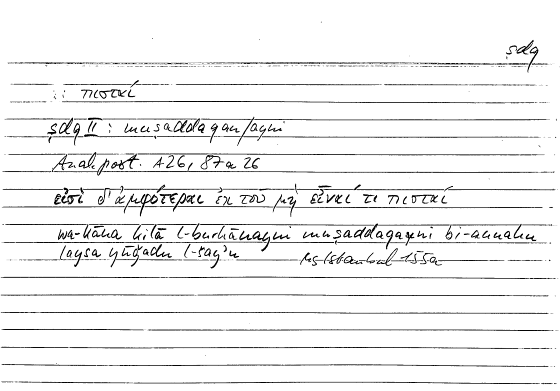 ṣdq
:: πισταί
ṣdq II : muṣaddaqan/ayni
Anal. post. A26, 87a26
εἰσὶ δ' ἀμφότεραι ἐκ τοῦ μὴ εἶναί τι πισταί
wa-kāna kilā l-burhānayni muṣaddaqayni bi-annahu
laysa yūǧadu l-šayʾu Ms Istanbul 155a